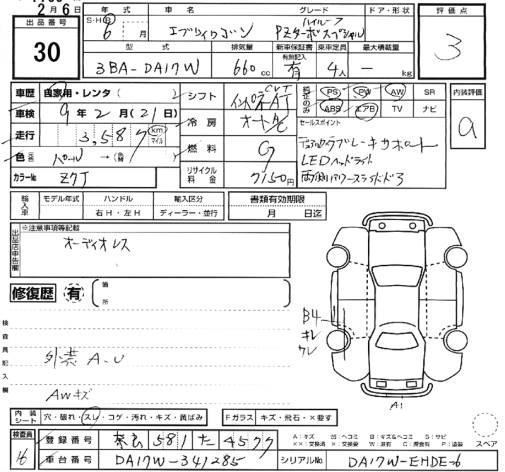 2月6日
出品番号
30
年式 車名 グレード ドア・形状
S・H・R
6
月
エブリィワゴン
ハイルーフ
PZターボスペシャル
評価点
3
型式 排気量 新車保証書 有無記入 乗車定員 最大積載量
3BA-DA17W 660cc 有 4人 - kg
車歴 自家用・レンタ( )
車検 9年2月(21日)
走行 3,587 km マイル
色 パール →( )
カラーNo Z7T
シフト インパネAT
冷房 オートA/C
燃料 G
リサイクル料金 7150円
純正のみ
PS PW AW SR
ABS エアB TV ナビ
セールスポイント
デュアルカメラブレーキサポート
LEDヘッドライト
両側パワースライドドア
内装評価
a
輸入車 モデル年式 ハンドル 右H・左H 輸入区分 ディーラー・並行
書類有効期限
月 日迄
出品店申告欄
※注意事項等記載
オーディオレス
修復歴 有 箇所
検査員記入欄
外装 A-U
AWキズ
B4
キレ
ワレ
A1
内装シート 穴・破れ・スレ・コゲ・汚れ・キズ・黄ばみ
Fガラス キズ・飛石・×要す
スペア
検査員
16
登録番号 581 た 4577
車台番号 DA17W-341285
シリアルNo DA17W-EHDE-6